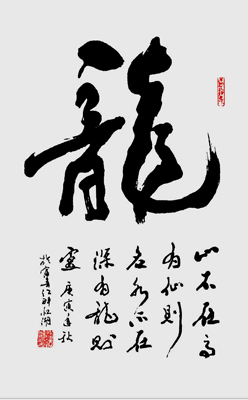 龍
山不在高
有仙則
名水不在
深有龍則
靈庚寅年秋